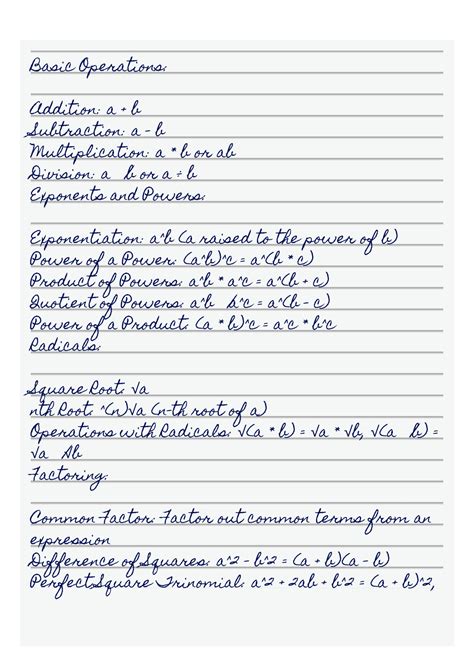 Basic Operations:
Addition: a + b
Subtraction: a - b
Multiplication: a * b or ab
Division: a b or a ÷ b
Exponents and Powers:
Exponentiation: a^b (a raised to the power of b)
Power of a Power: (a^b)^c = a^(b * c)
Product of Powers: a^b * a^c = a^(b + c)
Quotient of Powers: a^b b^c = a^(b - c)
Power of a Product: (a * b)^c = a^c * b^c
Radicals:
Square Root: √a
nth Root: ^(n)√a (n-th root of a)
Operations with Radicals: √(a * b) = √a * √b, √(a b) =
√a √b
Factoring:
Common Factor: Factor out common terms from an
expression
Difference of Squares: a^2 - b^2 = (a + b)(a - b)
Perfect Square Trinomial: a^2 + 2ab + b^2 = (a + b)^2,